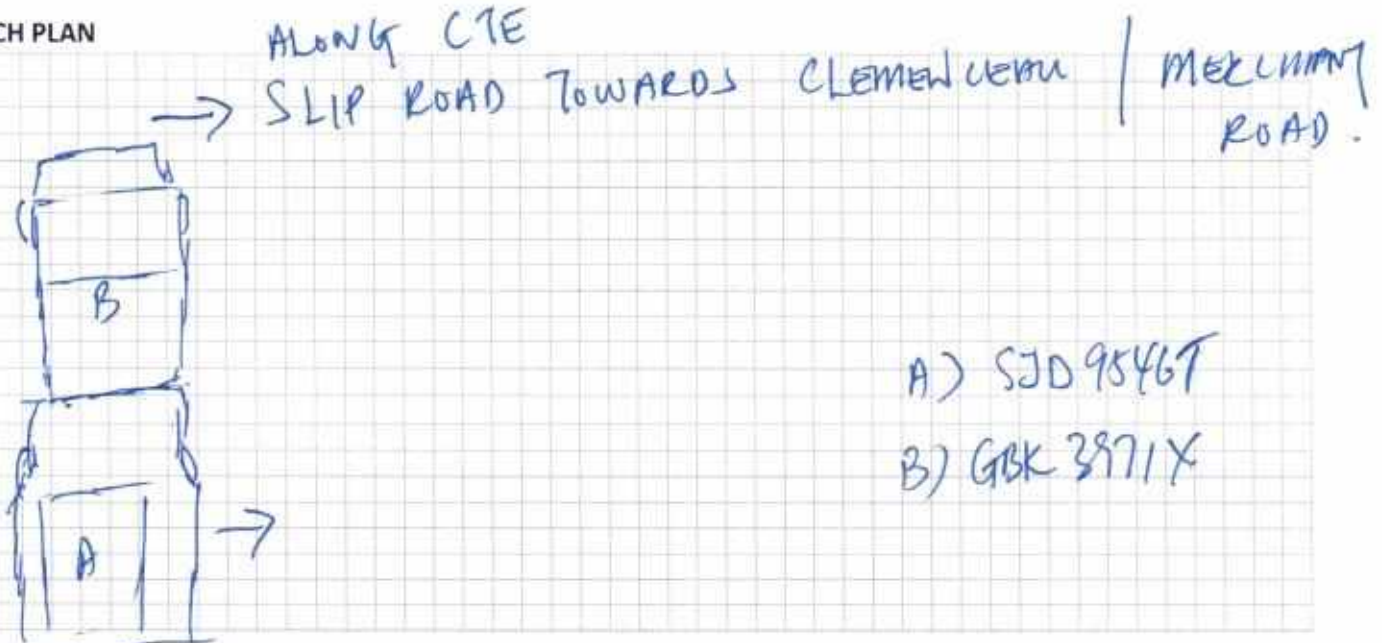 CH PLAN
ALONG CTE
→ SLIP ROAD TOWARDS CLEMENCEAU / MERCHANT
ROAD.
B
A) SJD9546T
B) GBK 3971X
A →